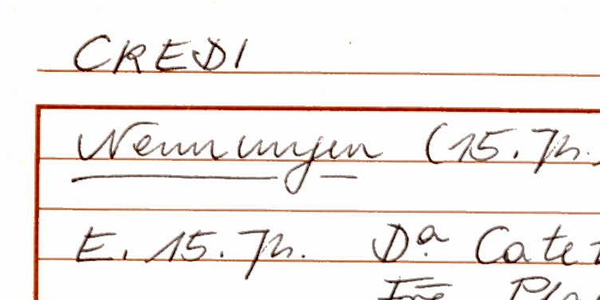 CREDI
Nennungen (15. Jh.)
E. 15. Jh. Dª Cate